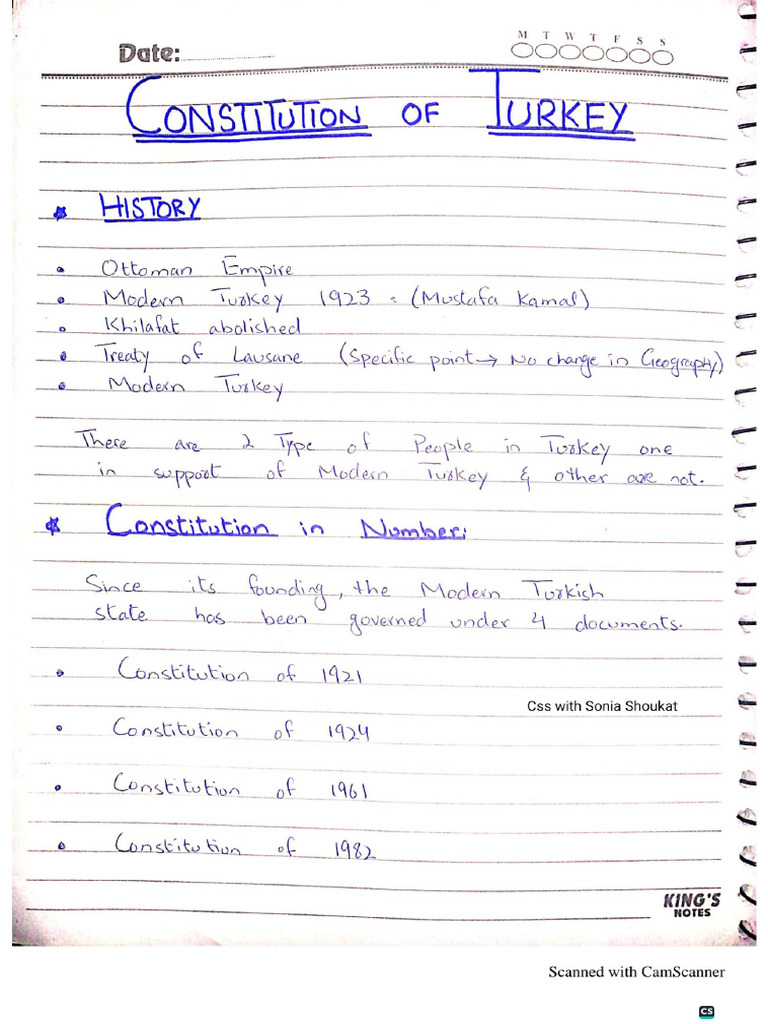 Date:
M T W T F S S
CONSTITUTION OF TURKEY
* HISTORY
• Ottoman Empire
• Modern Turkey 1923 : (Mustafa Kamal)
• Khilafat abolished
• Treaty of Lausane (Specific point → No change in Geography)
• Modern Turkey
There are 2 Type of People in Turkey one
in support of Modern Turkey & other are not.
* Constitution in Number:
Since its founding, the Modern Turkish
state has been governed under 4 documents.
• Constitution of 1921
Css with Sonia Shoukat
• Constitution of 1924
• Constitution of 1961
• Constitution of 1982
KING'S
NOTES
Scanned with CamScanner
CS